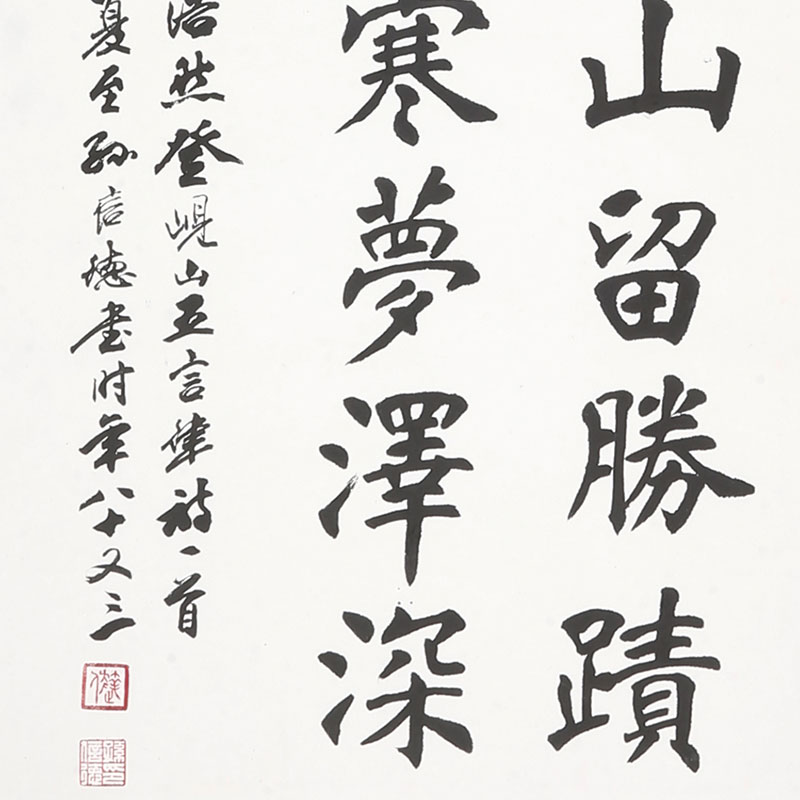 山留勝蹟
寒夢澤深
浩然登峴山五言律詩一首
夏至孫信德書時年八十又三
孫信德印